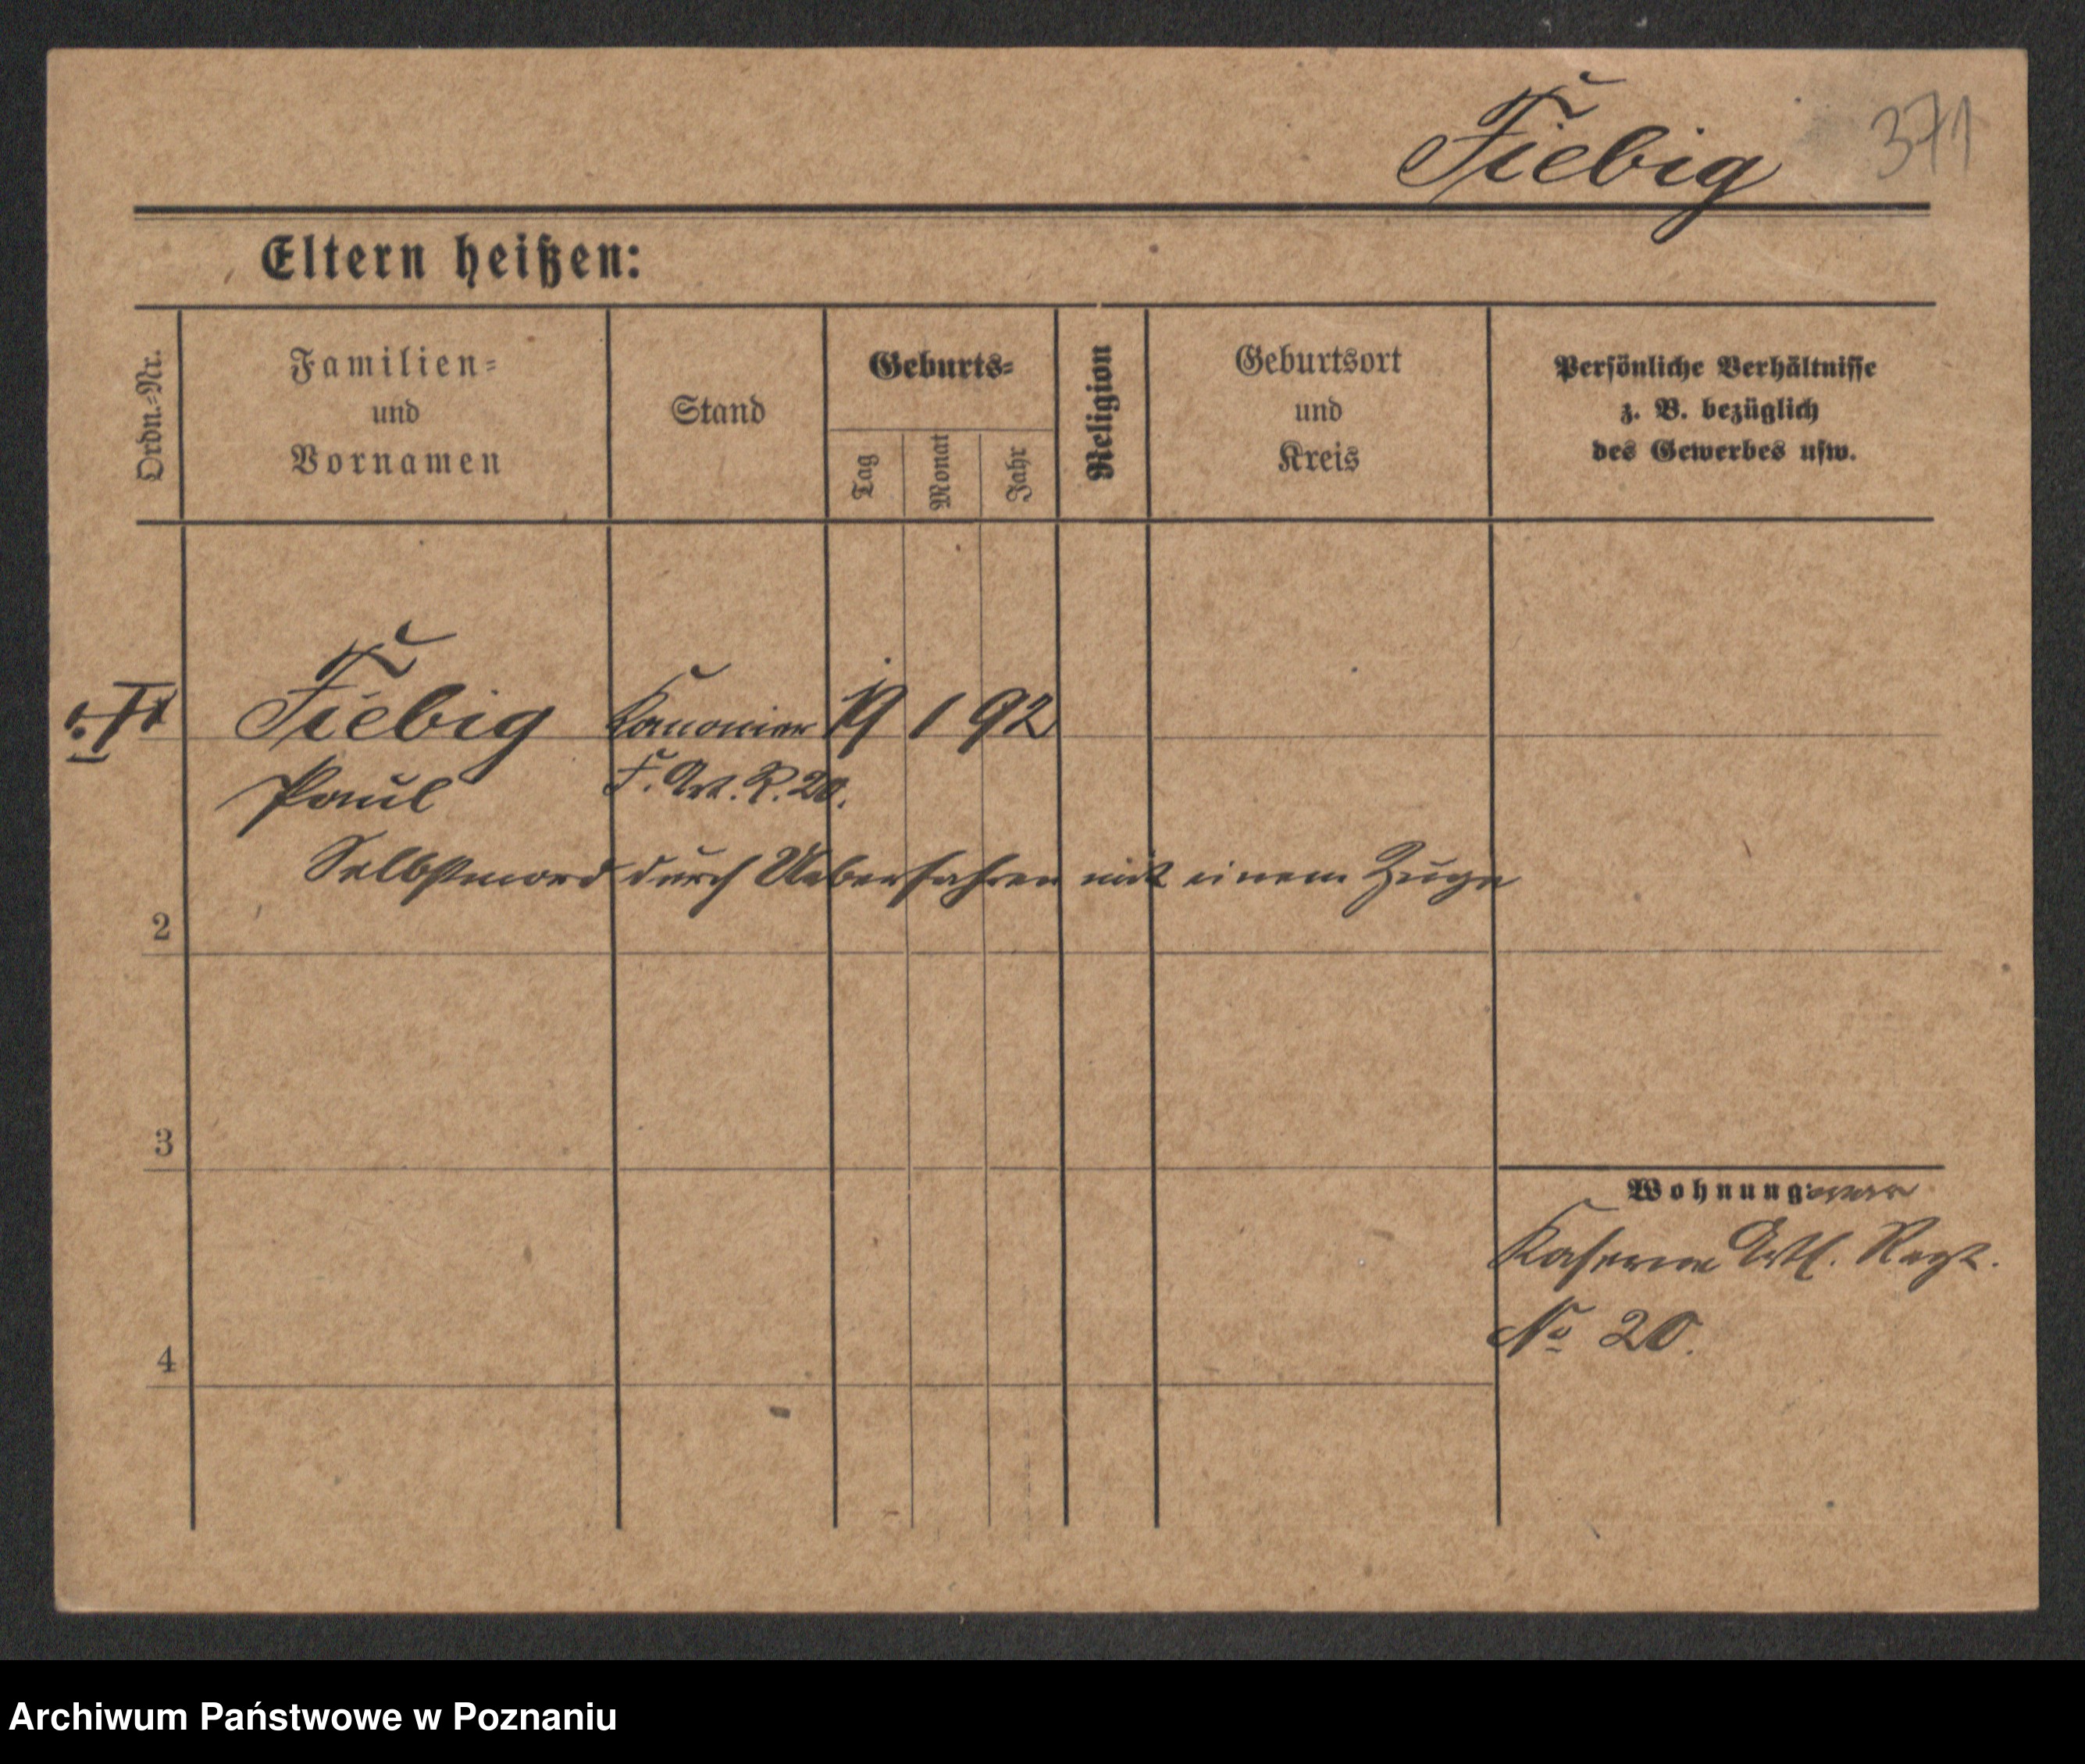 Fiebig 371
Eltern heißen:
Ordn.-Nr.
Familien-
und
Vornamen
Stand
Geburts-
Tag
Monat
Jahr
Religion
Geburtsort
und
Kreis
Persönliche Verhältnisse
z. B. bezüglich
des Gewerbes usw.
Fiebig Kanonier 19 1 92
Paul F. Art. R. 20.
Selbstmord durch Ueberfahren mit einem Zuge
2
3
Wohnung
Kaserne Art. Regt.
No 20.
4
Archiwum Państwowe w Poznaniu